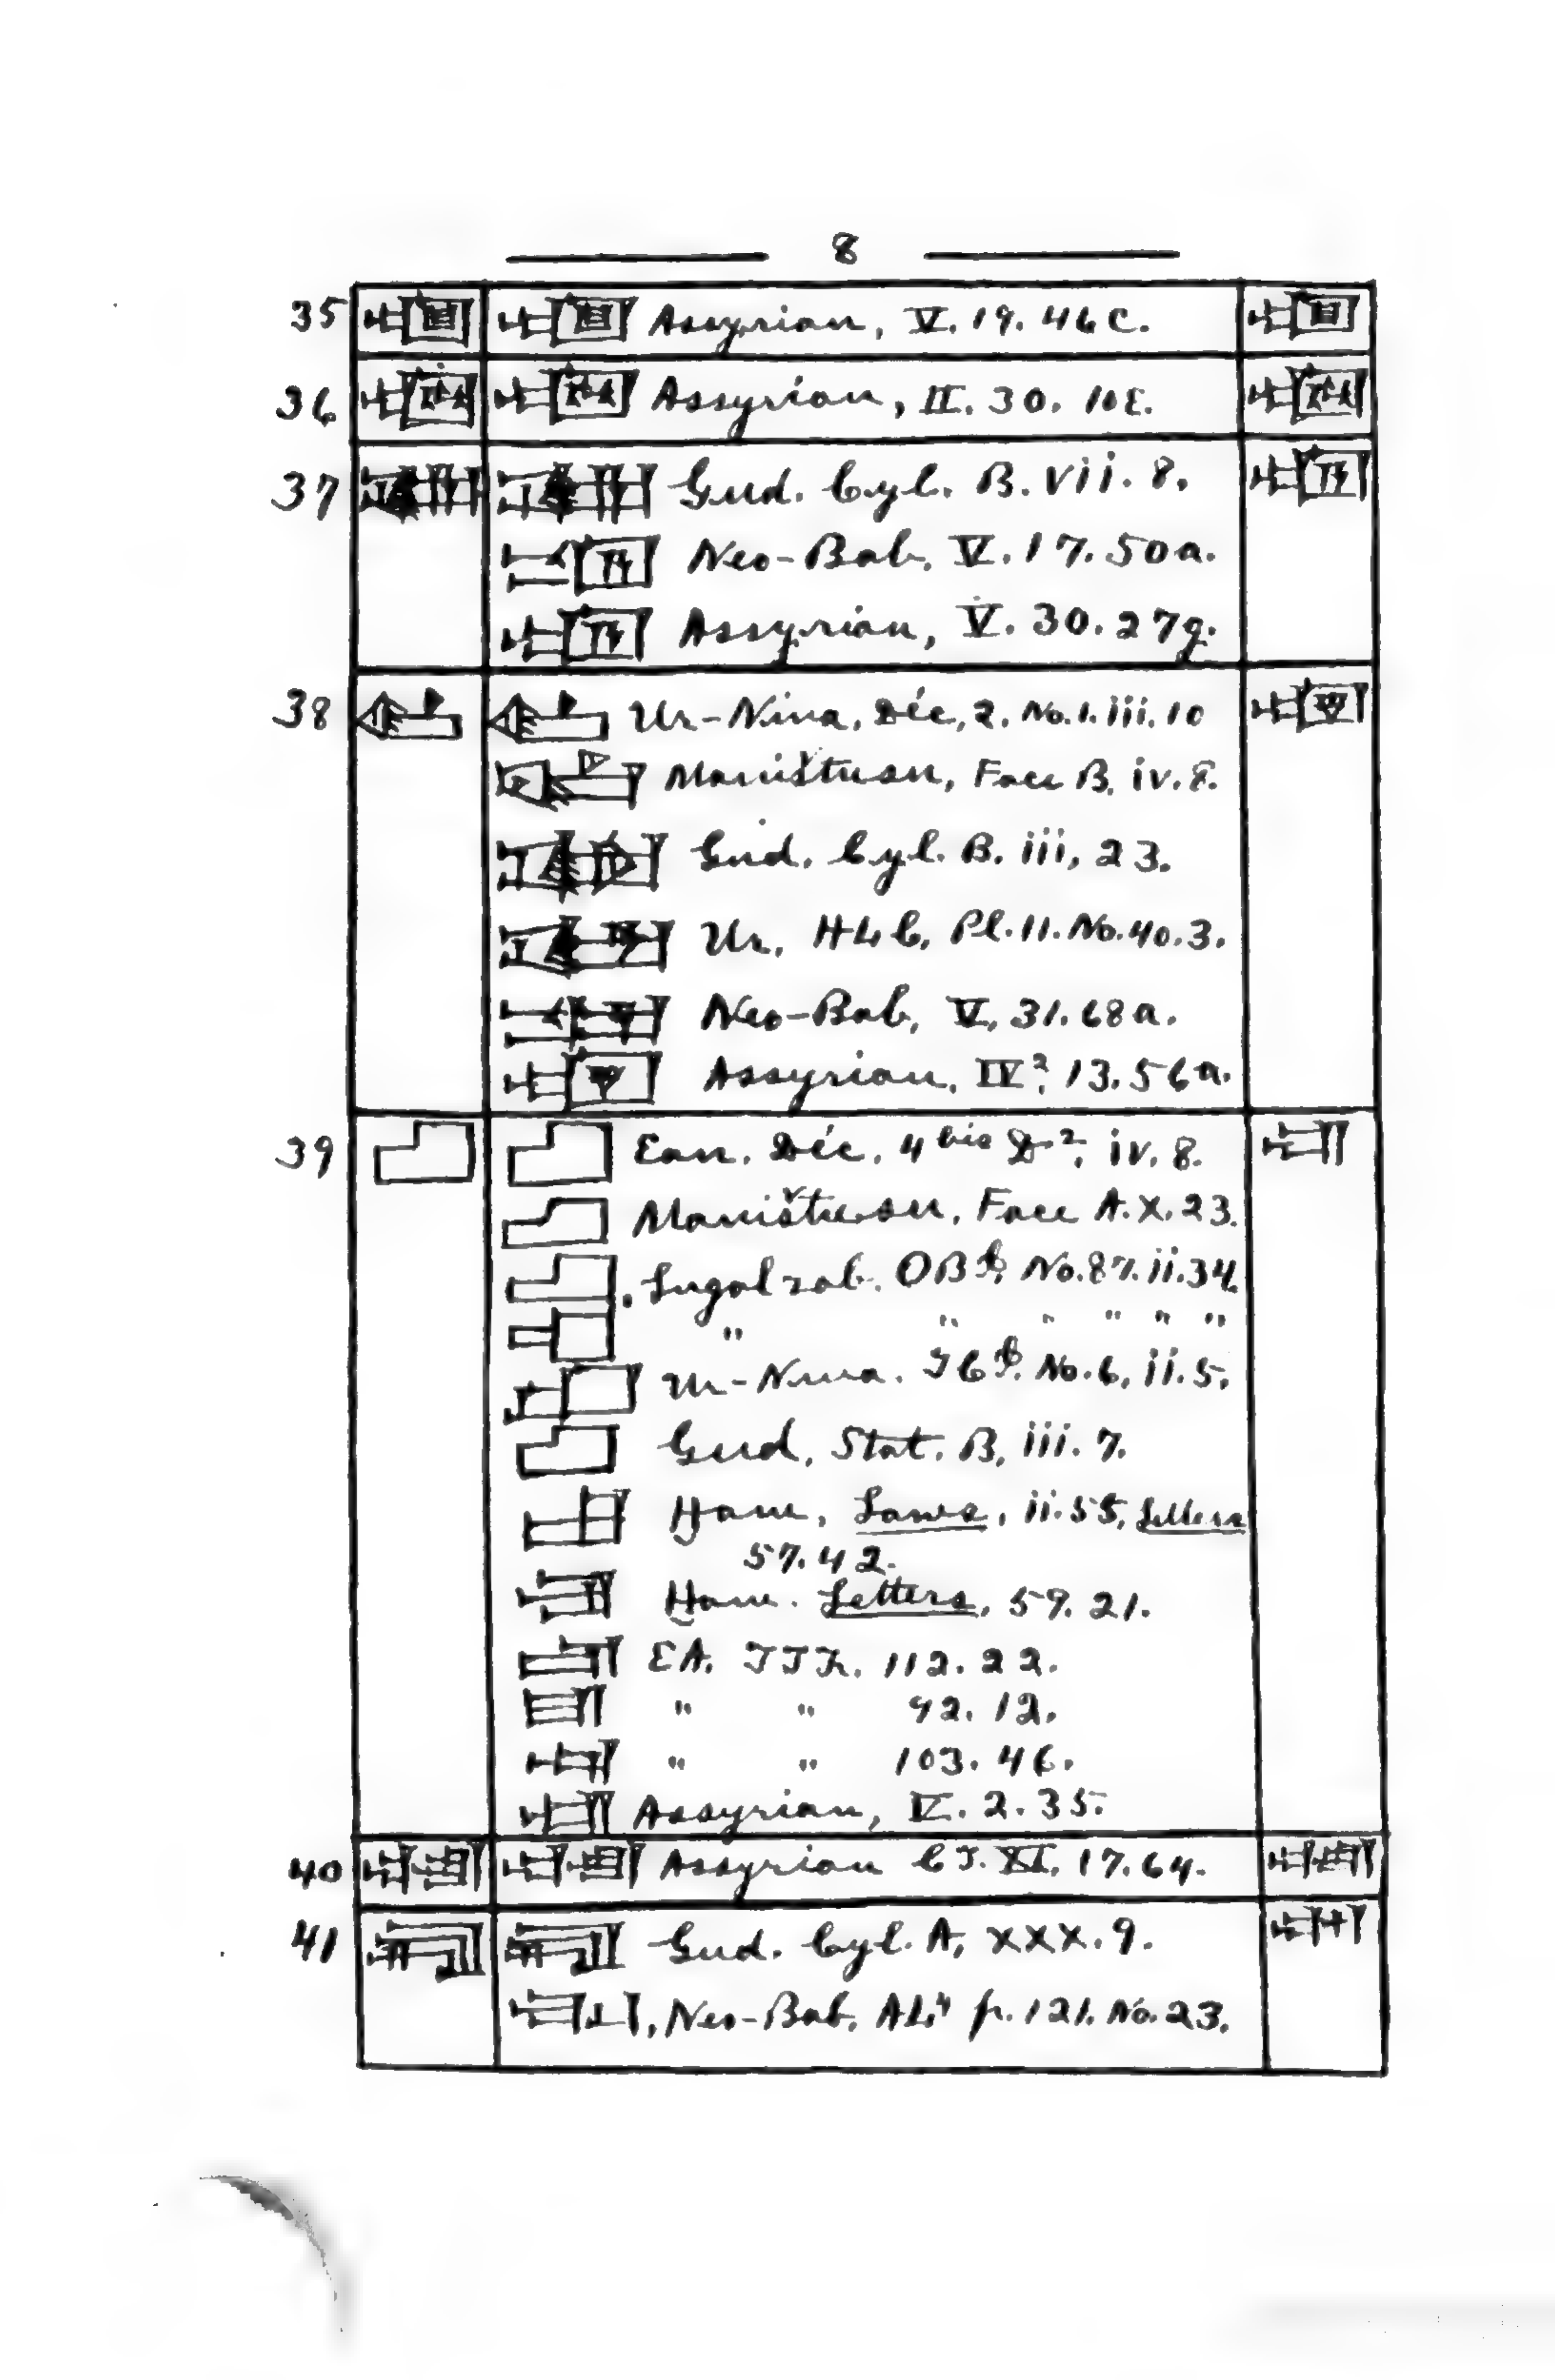 8
35 Assyrian, V. 19. 46c.
36 Assyrian, II. 30. 10E.
37 Gud. Cyl. B. vii. 8.
Neo-Bab. V. 17. 50a.
Assyrian, V. 30. 27g.
38 Ur-Nina, Déc, 2. No. 1. iii. 10
Maništusu, Face B, iv. 8.
Gud. Cyl. B. iii, 23.
Ur, HLC, Pl. 11. No. 40. 3.
Neo-Bab, V, 31. 68a.
Assyrian, IV². 13. 56a.
39 Ean. Déc. 4 bis D², iv. 8.
Maništusu, Face A. X. 23.
Lugalzab. OBI, No. 87. ii. 34.
" " " " " "
Ur-Nina. No. 6, ii. 5.
Gud, Stat. B, iii. 7.
Ham, Laws, ii. 55, Letters
57. 42.
Ham. Letters, 59. 21.
EA. 112. 22.
" " 92. 12.
" " 103. 46.
Assyrian, IV. 2. 35.
40 Assyrian CT. XI, 17. 64.
41 Gud. Cyl. A, XXX. 9.
Neo-Bab, AL⁴ p. 121. No. 23.